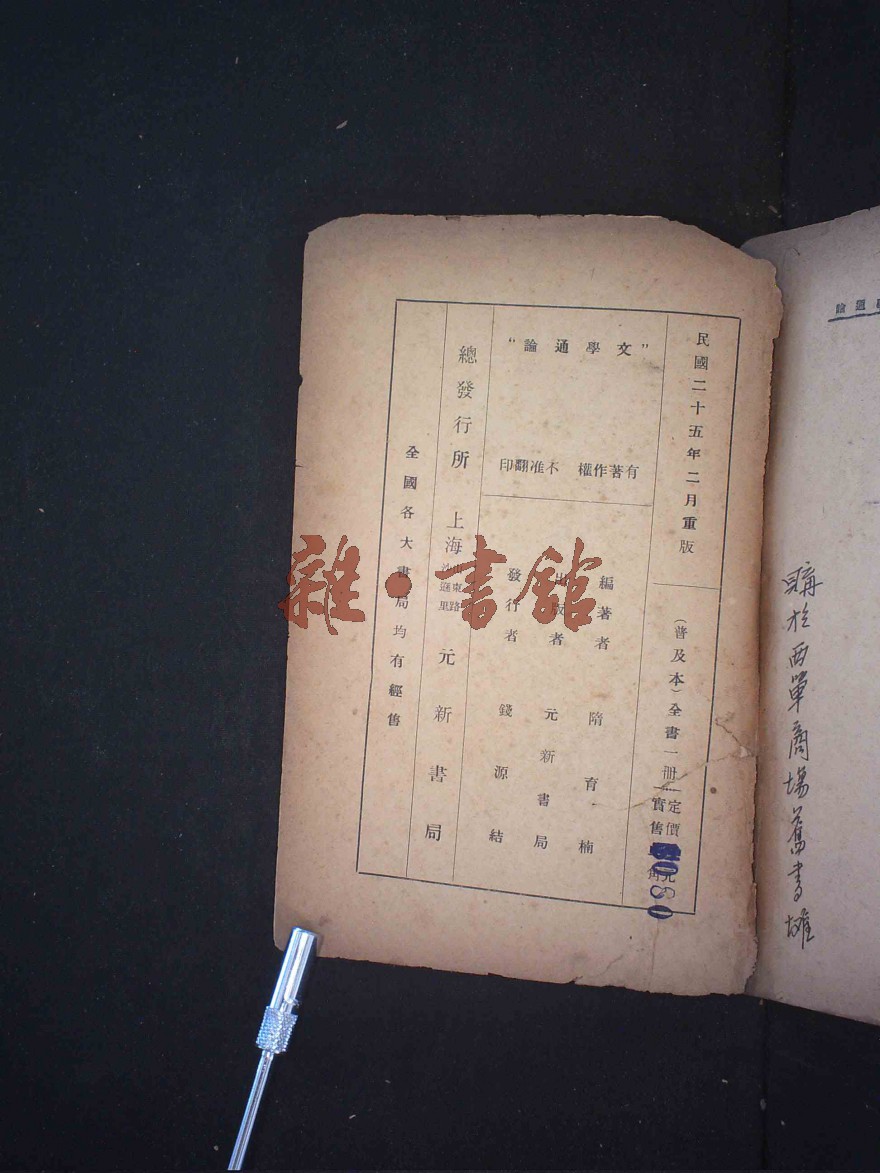 論通學
購於西單商場舊書攤
民國二十五年二月重版
(普及本)全書一冊
定價
實售
元
角
080
"文學通論"
有著作權 不准翻印
編著者 隋育楠
出版者 元新書局
發行者 錢源結
總發行所 上海 山東路 元新書局
全國各大書局均有經售
雜·書館